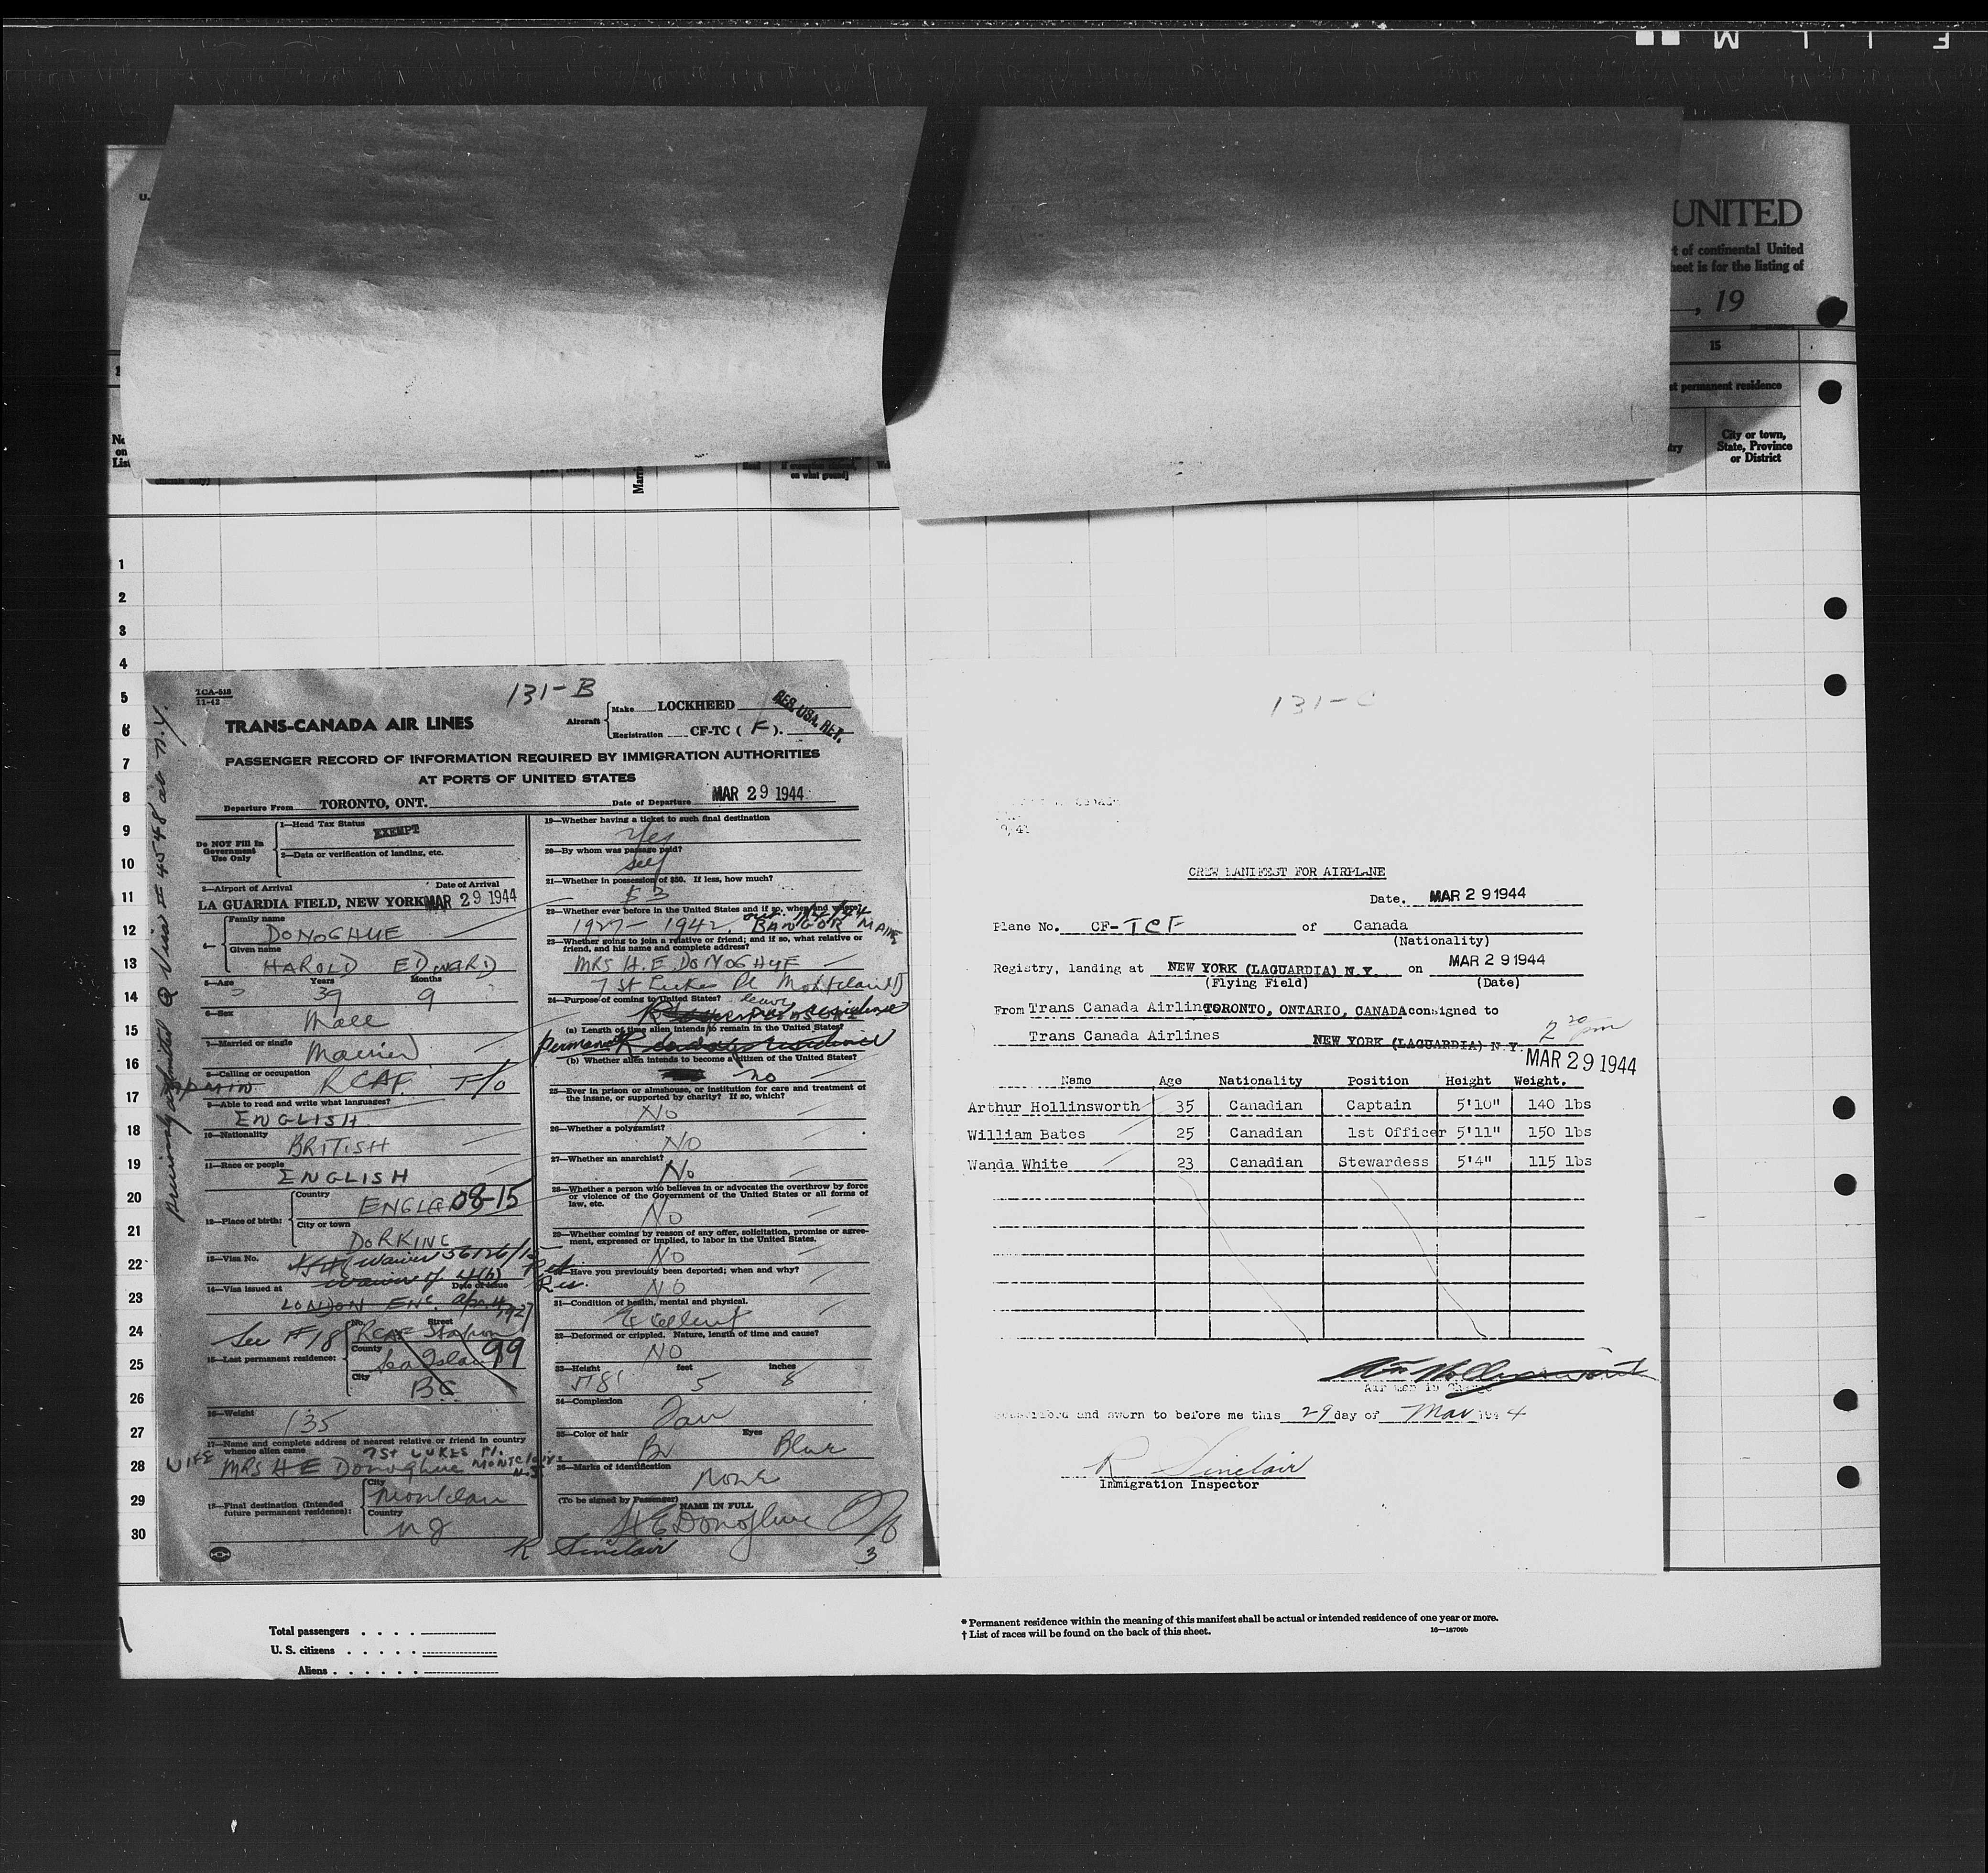 F I L M
UNITED
t of continental United
heet is for the listing of
, 19
15
st permanent residence
City or town,
State, Province
or District
on what ground]
1
2
3
4
5
6
7
8
9
10
11
12
13
14
15
16
17
18
19
20
21
22
23
24
25
26
27
28
29
30
TCA-518
11-42
131-B
TRANS-CANADA AIR LINES
Aircraft
Make LOCKHEED
Registration CF-TC ( F ).
RES. USA. RET.
PASSENGER RECORD OF INFORMATION REQUIRED BY IMMIGRATION AUTHORITIES
AT PORTS OF UNITED STATES
Departure From TORONTO, ONT. Date of Departure MAR 29 1944
Do NOT Fill In
Government
Use Only
1—Head Tax Status
EXEMPT
2—Data or verification of landing, etc.
3—Airport of Arrival Date of Arrival
LA GUARDIA FIELD, NEW YORK MAR 29 1944
4—
Family name
DONOGHUE
Given name
HAROLD EDWARD
5—Age Years Months
39 9
6—Sex
Male
7—Married or single
Married
8—Calling or occupation
RCAF F/O
9—Able to read and write what languages?
ENGLISH
10—Nationality
BRITISH
11—Race or people
ENGLISH
12—Place of birth:
Country
08-15
City or town
DORKING
13—Visa No.
Waiver 56126/
Waiver of 4(b)
14—Visa issued at Date of issue
LONDON ENG. Apr 11 1927
See #18
15—Last permanent residence:
No. Street
RCAF Station
County
Sea Island
99
City
BC
16—Weight
135
17—Name and complete address of nearest relative or friend in country
whence alien came
7 ST LUKES Pl.
WIFE MRS H E Donoghue MONTCLAIR
N.J.
18—Final destination (Intended
future permanent residence):
City
Montclair
Country
NJ
19—Whether having a ticket to such final destination
Yes
20—By whom was passage paid?
self
21—Whether in possession of $50. If less, how much?
$3
22—Whether ever before in the United States and if so, when and where?
1927 — 1942. BANGOR MAINE
23—Whether going to join a relative or friend; and if so, what relative or
friend, and his name and complete address?
MRS H. E. DONOGHUE
7 St Lukes Pl Montclair NJ
24—Purpose of coming to United States?
leave
(a) Length of time alien intends to remain in the United States?
permanent
(b) Whether alien intends to become a citizen of the United States?
no
25—Ever in prison or almshouse, or institution for care and treatment of
the insane, or supported by charity? If so, which?
NO
26—Whether a polygamist?
NO
27—Whether an anarchist?
No
28—Whether a person who believes in or advocates the overthrow by force
or violence of the Government of the United States or all forms of
law, etc.
No
29—Whether coming by reason of any offer, solicitation, promise or agree-
ment, expressed or implied, to labor in the United States.
NO
30—Have you previously been deported; when and why?
NO
31—Condition of health, mental and physical.
Excellent
32—Deformed or crippled. Nature, length of time and cause?
NO
33—Height feet inches
5 8
34—Complexion
35—Color of hair Eyes
Br Blue
36—Marks of identification
None
(To be signed by Passenger) NAME IN FULL
H E Donoghue
R Sinclair
3
131-C
CREW MANIFEST FOR AIRPLANE
Date. MAR 2 9 1944
Plane No. CF-TCF of Canada
(Nationality)
Registry, landing at NEW YORK (LAGUARDIA) N.Y. on MAR 2 9 1944
(Flying Field) (Date)
From Trans Canada Airlin TORONTO, ONTARIO, CANADA consigned to
Trans Canada Airlines NEW YORK (LAGUARDIA) N.Y.
2 20 pm
MAR 2 9 1944
Name Age Nationality Position Height Weight.
Arthur Hollinsworth 35 Canadian Captain 5'10" 140 lbs
William Bates 25 Canadian 1st Officer 5'11" 150 lbs
Wanda White 23 Canadian Stewardess 5'4" 115 lbs
Air Men in Charge
Subscribed and sworn to before me this 29 day of Mar 1944
R Sinclair
Immigration Inspector
Total passengers
U. S. citizens
Aliens
* Permanent residence within the meaning of this manifest shall be actual or intended residence of one year or more.
† List of races will be found on the back of this sheet.
16—18709b